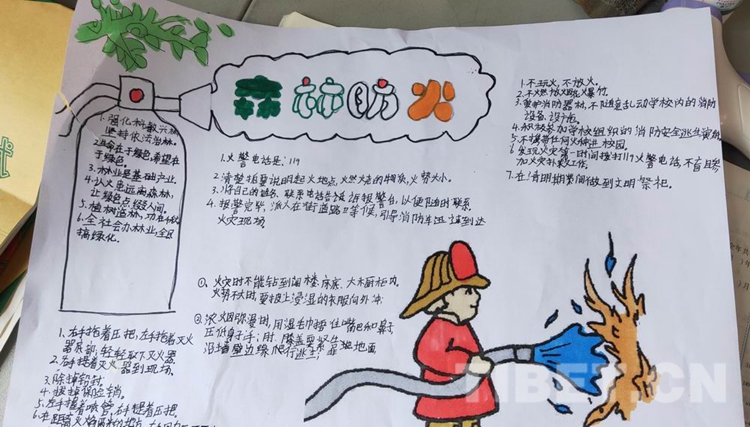 森林防火
1. 强化科教兴林,
坚持依法治林。
2. 生命在于绿色,希望在
于绿色。
3. 林业是基础产业。
4. 让火患远离森林,
让绿色点缀人间。
5. 植树造林,功在千秋
6. 全社会办林业,全民
搞绿化。
1. 火警电话是:119
2. 清楚扼要说明起火地点,燃烧的物质,火势大小。
3. 将自己的姓名、联系电话告诉报警台,以便随时联系.
4. 报警完毕,派人在街道路口等候,引导消防车迅速到达
火灾现场.
1. 不玩火,不放火。
2. 不燃放烟花爆竹。
3. 爱护消防器材,不随意乱动学校内的消防
设备、设施。
4. 积极参加学校组织的消防安全逃生演练
5. 不携带任何火种进校园.
6. 发现火灾第一时间拨打119火警电话,不盲目参
加火灾扑救工作。
7. 在清明期间做到文明祭祀.
①、火灾时不能钻到阁楼、床底、大木厨柜内.
火势不大时,要披上浸湿的衣服向外冲
②、浓烟弥漫时,用湿毛巾捂住嘴巴和鼻子
沿墙壁边缘爬行逃生!
1. 右手拖着压把,左手拖着灭火
器底部,轻轻取下灭火器
2. 右手提着灭火器到现场.
3. 除掉铅封.
4. 拔掉保险销.
5. 左手握着喷管,右手提着压把.
TIBET.CN